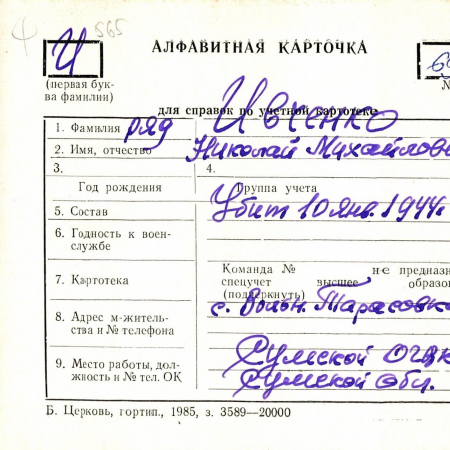 565
И
АЛФАВИТНАЯ КАРТОЧКА
(первая бук-
ва фамилии)
для справок по учетной картотеке
1. Фамилия ряд Ивченко
2. Имя, отчество Николай Михайлов
3.
4.
Год рождения
Группа учета
5. Состав Убит 10 янв. 1944г.
6. Годность к воен-
службе
Команда №
не предназн
7. Картотека
спецучет высшее образо
(подчеркнуть)
8. Адрес м-житель-
ства и № телефона
с. Вольн. Тарасовка
9. Место работы, дол-
жность и № тел. ОК
Сумской
Сумской обл.
Б. Церковь, гортип., 1985, з. 3589—20000